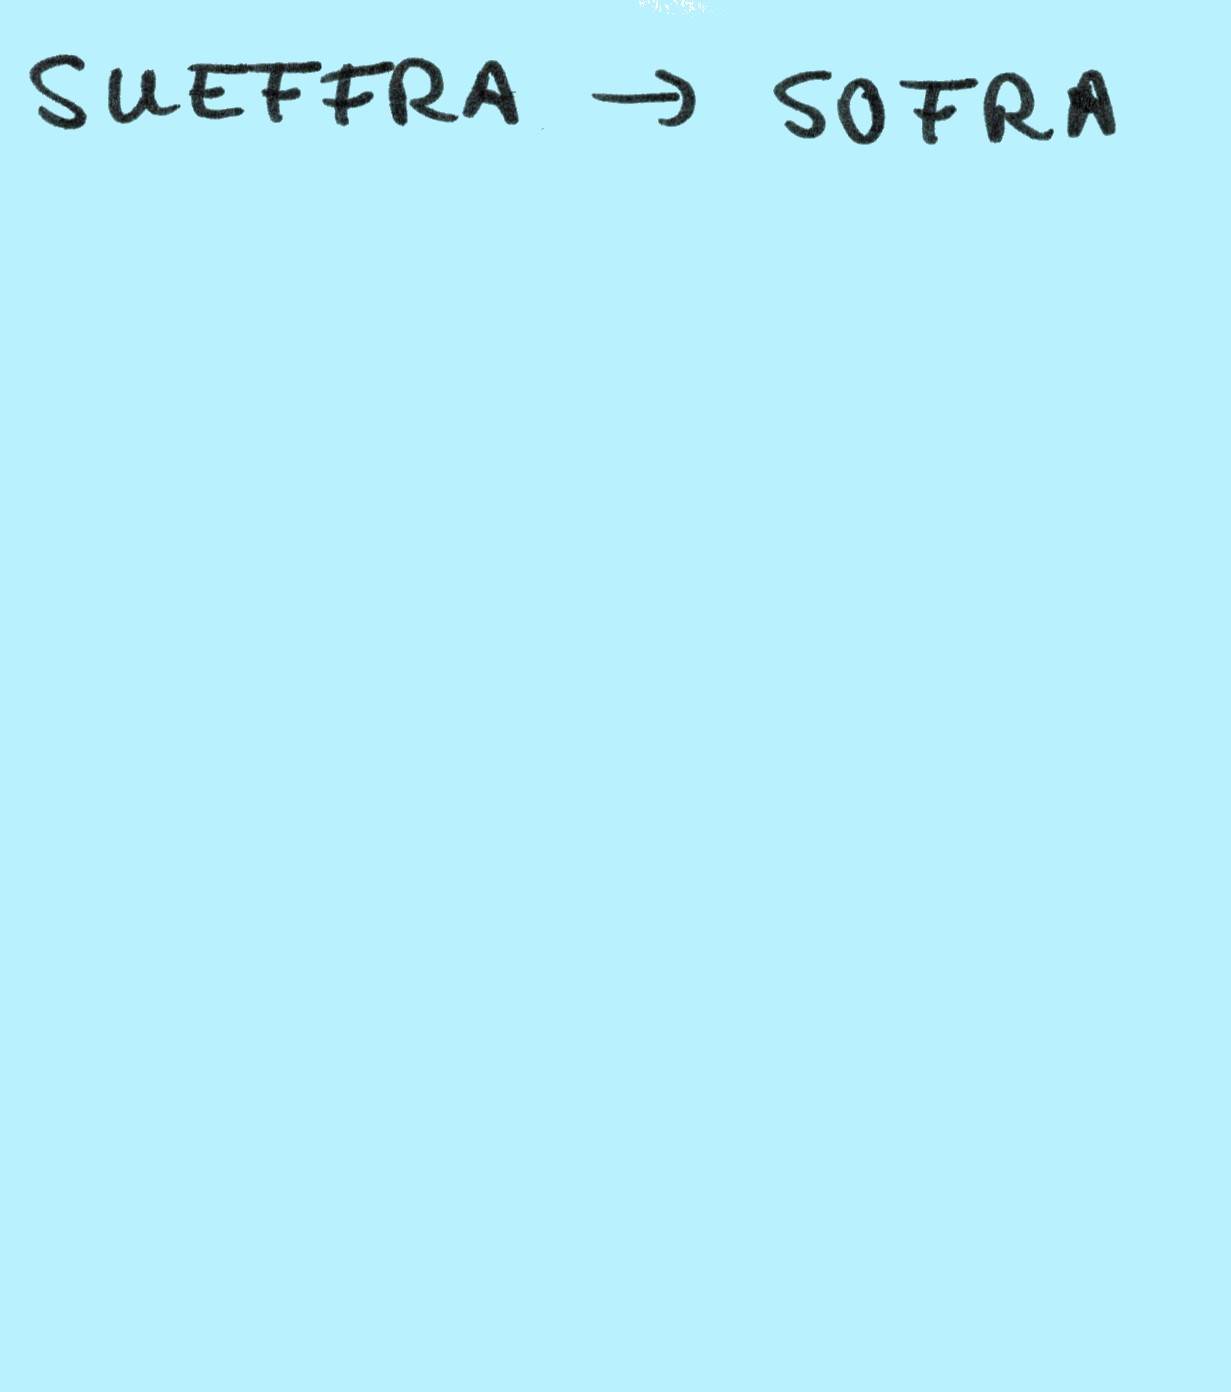 SUEFFRA → SOFRA